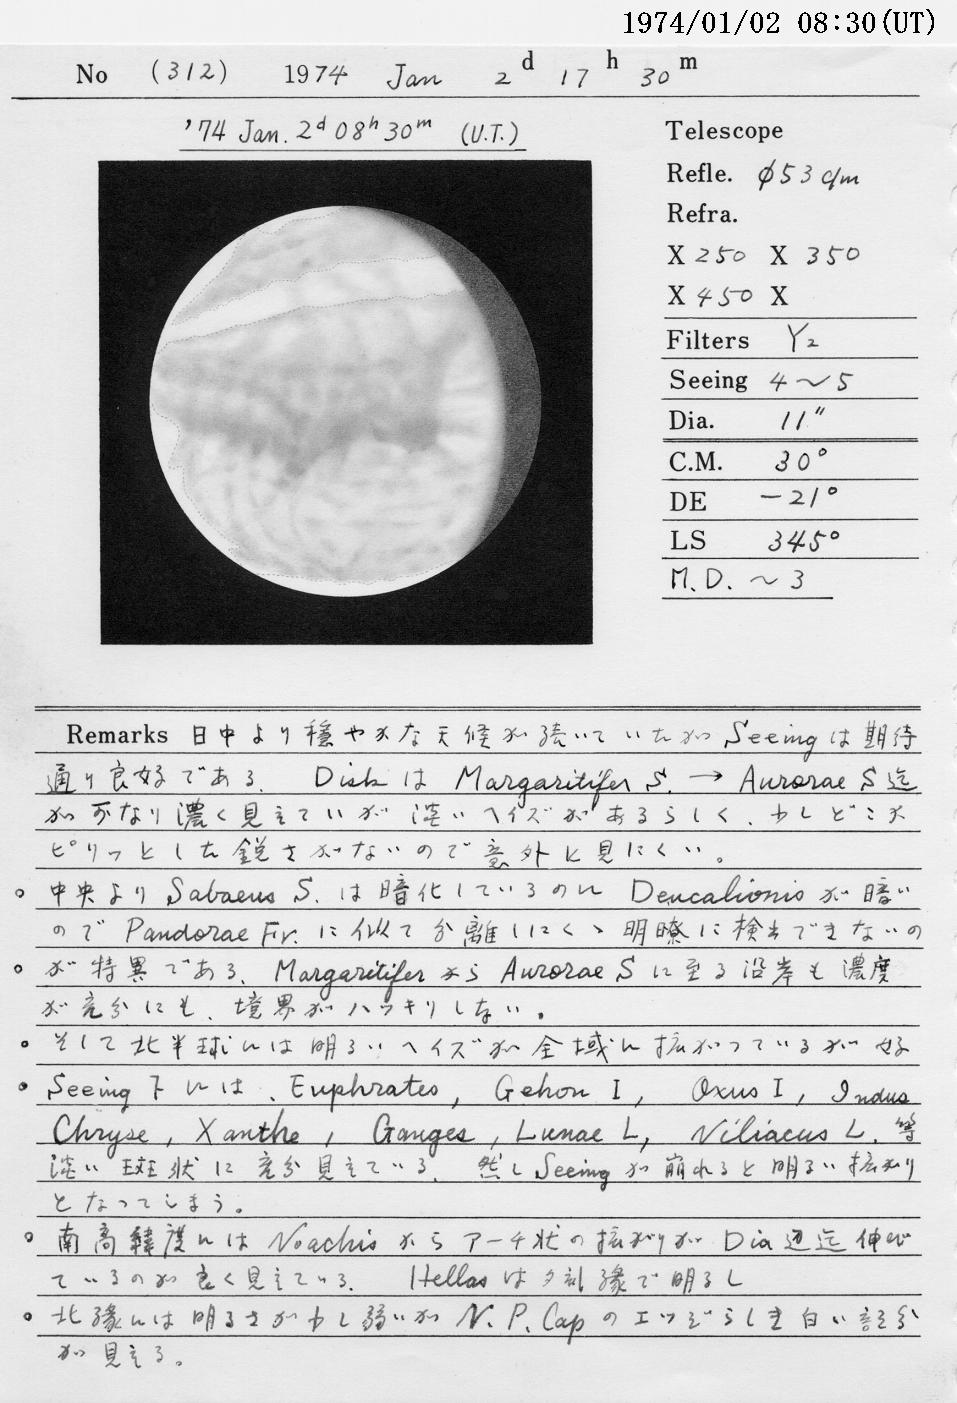 1974/01/02 08:30(UT)
No (312) 1974 Jan 2 d 17 h 30 m
'74 Jan. 2d 08h 30m (U.T.)
Telescope
Refle. φ53c/m
Refra.
X 250 X 350
X 450 X
Filters Y2
Seeing 4～5
Dia. 11"
C.M. 30°
DE －21°
LS 345°
M.D. ～3
Remarks 日中より穏やかな天候が続いていたが Seeing は期待
通り良好である。 Disk は Margaritifer S. → Aurorae S 迄
が可なり濃く見えているが 淡いヘイズがあるらしく、少しどこか
ピリッとした鋭さがないので意外に見にくい。
○ 中央より Sabaeus S. は暗化しているのに Deucalionis が暗い
ので Pandorae Fr. に似て分離しにくく 明瞭に検出できないの
○ が特異である。 Margaritifer から Aurorae S に至る沿岸も濃度
が充分にも、境界がハッキリしない。
○ そして北半球には明るいヘイズが全域に拡がっているが 好
○ Seeing 下には、Euphrates, Gehon I, Oxus I, Indus
Chryse, Xanthe, Ganges, Lunae L, Niliacus L. 等
淡い斑状に充分見えている。 然し Seeing が崩れると明るい拡がり
となってしまう。
○ 南高緯度には Noachis からアーチ状の拡がりが Dia 辺迄伸び
ているのが良く見えている。 Hellas は夕刻縁で明るし
○ 北縁には明るさが少し弱いが N.P.Cap のエッジらしき白い部分
が見える。